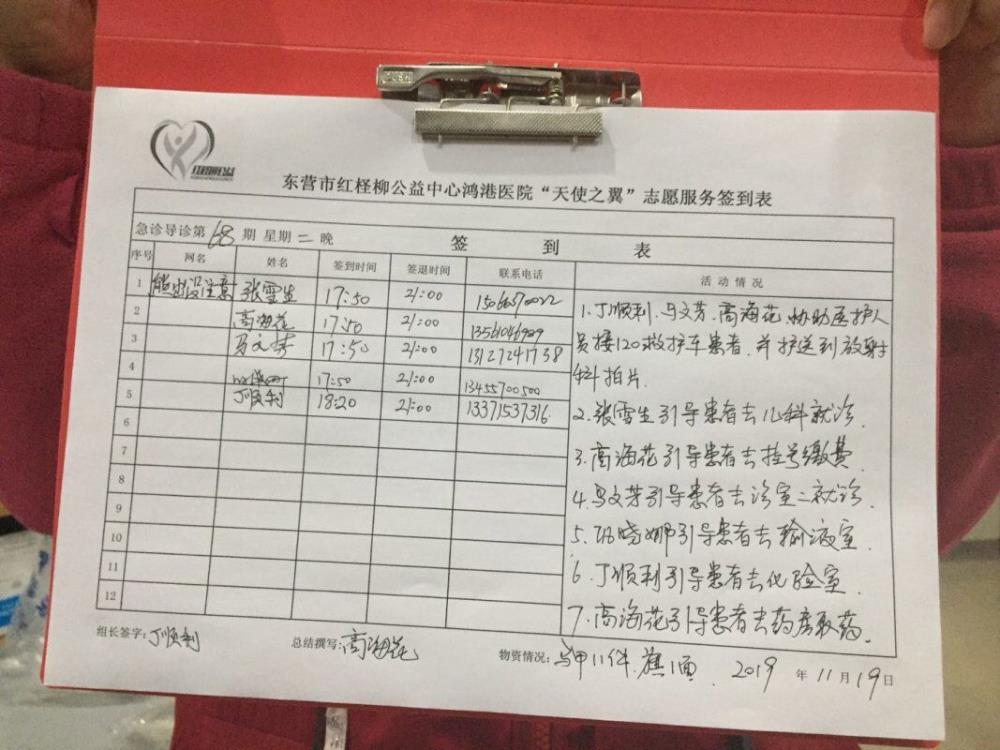 东营市红柽柳公益中心鸿港医院“天使之翼”志愿服务签到表
急诊导诊第68期 星期二晚
签到表
序号 网名 姓名 签到时间 签退时间 联系电话 活动情况
1 熊出没注意 张雪生 17:50 21:00
2 高海花 17:50 21:00
3 马文芳 17:50 21:00 13127241738
4 17:50 21:00 13455700500
5 丁顺利 18:20 21:00 13371537316
6
7
8
9
10
11
12
1.丁顺利.马文芳.高海花.协助医护人
员接120救护车患者.并护送到放射
科拍片.
2.张雪生引导患者去儿科就诊.
3.高海花引导患者去挂号缴费.
4.马文芳引导患者去诊室二就诊.
5.晓娜引导患者去输液室.
6.丁顺利引导患者去化验室.
7.高海花引导患者去药房取药.
组长签字:丁顺利 总结撰写:高海花 物资情况:马甲11件.旗1面. 2019年11月19日